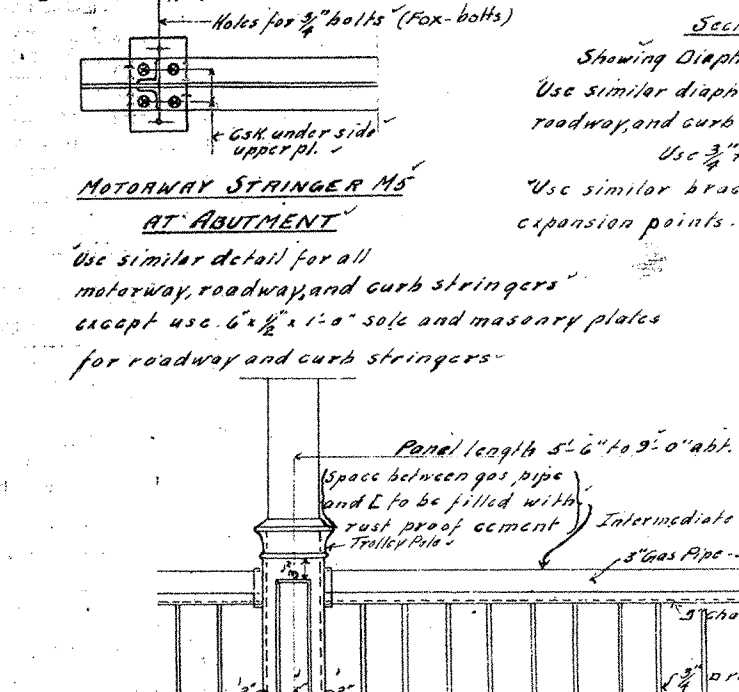 Holes for 3/4" bolts (Fox-bolts)
Csk. under side
upper pl.
MOTORWAY STRINGER M5
AT ABUTMENT
Use similar detail for all
motorway, roadway, and curb stringers
except use 6" x 1/2" x 1'-0" sole and masonry plates
for roadway and curb stringers
Showing Diaph
Use similar diaph
roadway, and curb
Use 3/4"
Use similar brac
expansion points.
Panel length 5'-6" to 9'-0" abt.
Space between gas pipe
and [ to be filled with
rust proof cement
Trolley Pole
Intermediate
3" Gas Pipe